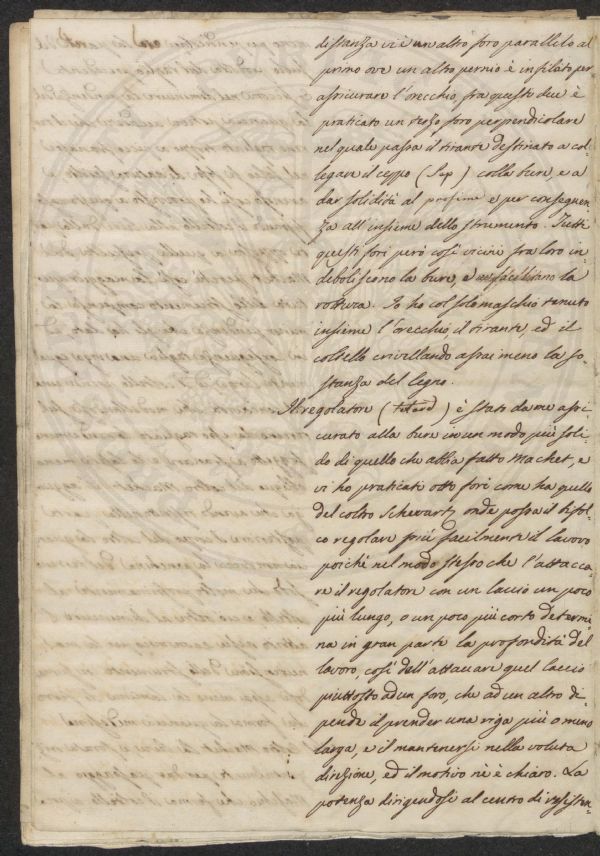 distanza vi è un altro foro parallelo al
primo ove un altro pernio è infilato per
assicurare l'orecchio, fra questi due è
praticato un terzo foro perpendicolare
nel quale passa il tirante destinato a col
legare il ceppo (Sep) colla bure, e a
dar solidità al prosime e per conseguen
za all'insieme dello strumento. Tutti
questi fori però così vicini fra loro in
deboliscono la bure, e ne facilitano la
rottura. Io ho col solo maschio tenuto
insieme l'orecchio il tirante, ed il
coltello crivellando assai meno la so-
stanza del legno.
Il regolatore (tetard) è stato da me assi
curato alla bure in un modo più soli
do di quello che abbia fatto Machet, e
vi ho praticati otto fori come ha quello
del coltro Schwartz onde possa il bifol
co regolare più facilmente il lavoro
poiché nel modo stesso che l'attacca
re il regolatore con un laccio un poco
più lungo, o un poco più corto determi
na in gran parte la profondità del
lavoro, così dall'attaccare quel laccio
piuttosto ad un foro, che ad un altro di
pende il prender una riga più o meno
larga, e il mantenersi nella voluta
direzione, ed il motivo n'è chiaro. La
potenza dirigendosi al centro di resisten